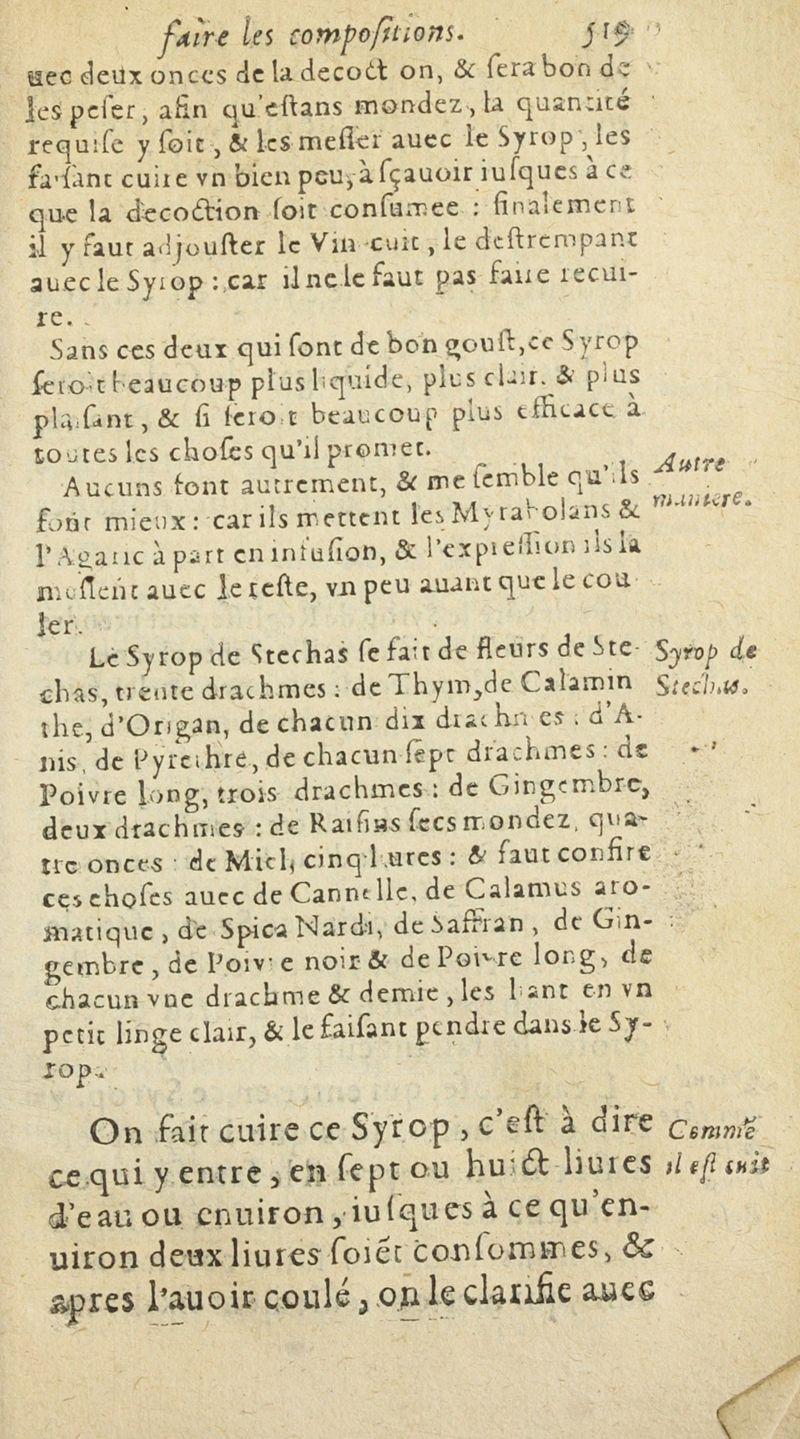 faire les compoſitions. 519
uec deux onces de la decoct on, & ſera bon de
les peſer, afin qu'eſtans mondez, la quantité
requiſe y ſoit, & les meſler auec le Syrop, les
faiſant cuire vn bien peu, à ſçauoir iuſques à ce
que la decoction ſoit conſumee : finalement
il y faut adjouſter le Vin cuit, le deſtrempant
auec le Syrop : car il ne le faut pas faire recui-
re.
Sans ces deux qui ſont de bon gouſt, ce Syrop
ſeroit beaucoup plus liquide, plus clair, & plus
plaiſant, & ſi ſeroit beaucoup plus efficace à
toutes les choſes qu'il promet.
Aucuns font autrement, & me ſemble qu'ils
Autre
font mieux : car ils mettent les Myrabolans &
maniere.
l'Agaric à part en infuſion, & l'expreſſion ils la
meſlent auec le reſte, vn peu auant que le cou
ler.
Le Syrop de Stechas ſe fait de fleurs de Ste-
Syrop de
chas, trente drachmes : de Thym, de Calamin
Stechas.
the, d'Origan, de chacun dix drachmes : d'A-
nis, de Pyrethre, de chacun ſept drachmes : de
Poivre long, trois drachmes : de Gingembre,
deux drachmes : de Raiſins ſecs mondez, qua-
tre onces : de Miel, cinq liures : & faut confire
ces choſes auec de Cannelle, de Calamus aro-
matique, de Spica Nardi, de Saffran, de Gin-
gembre, de Poivre noir & de Poivre long, de
chacun vne drachme & demie, les liant en vn
petit linge clair, & le faiſant pendre dans le Sy-
rop.
On fait cuire ce Syrop, c'eſt à dire
Comme
ce qui y entre, en ſept ou huict liures
il eſt cuit
d'eau ou enuiron, iuſques à ce qu'en-
uiron deux liures ſoiét conſommes, &
apres l'auoir coulé, on le clarifie auec